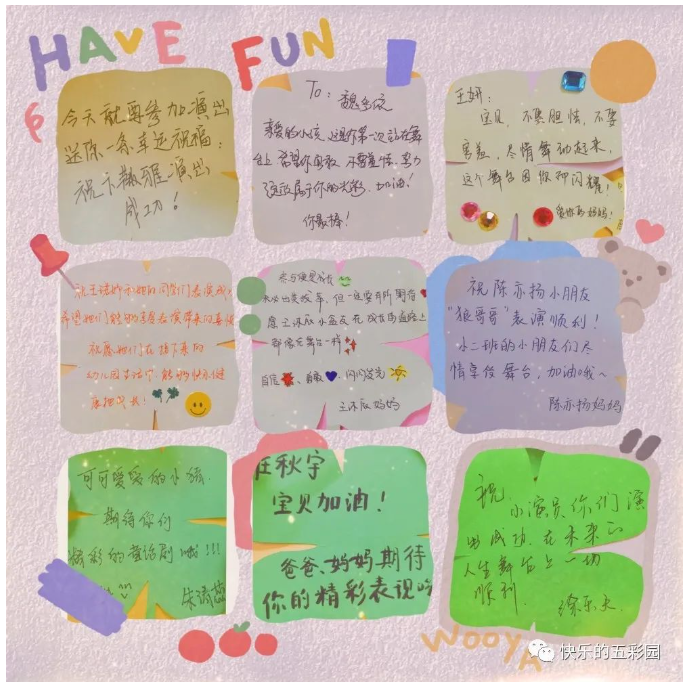 HAVE FUN
今天就要参加演出
送你一条幸运祝福:
祝卞颖雅演出
成功!
To:魏
亲爱的小孩,这是你第一次站在舞
台上,希望你勇敢,不要害怕,努力
绽放属于你的光彩,加油!
你最棒!
王妍:
宝贝,不要胆怯,不要
害羞,尽情舞动起来,
这个舞台因你而闪耀!
爱你的妈妈!
幼儿园生活中,能够快乐健
康地成长!
自信、勇敢、闪闪发光
王沐辰妈妈
祝陈亦扬小朋友
“狼哥哥”表演顺利!
小二班的小朋友们尽
情享受舞台,加油哦~
陈亦扬妈妈
可可爱爱的小孩,
期待你们
精彩的童话剧哟!!!
汪秋宇
宝贝加油!
爸爸、妈妈期待
你的精彩表现哟
祝
小演员你们演
出成功,在未来的
人生舞台上一切
顺利.
WOOYA
快乐的五彩园